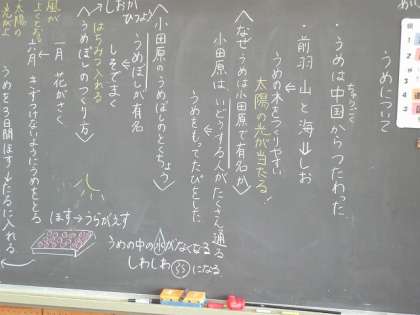 うめについて
・うめは中国からつたわった
ちゅうごく
・前羽 山と海→しお
うめの木をつくりやすい
太陽の光が当たる!
〈なぜうめは小田原で有名か〉
小田原はいどうする人がたくさん通る
うめをもってたびをした
〈小田原のうめぼしのとくちょう〉
うめぼしが有名
しそでまく
はちみつ入れる
〈うめぼしのつくり方〉
しおが
ひつよう
一月 花がさく
六月 キズつけないようにうめをとる
うめを3日間ほす→たるに入れる
ほす→うらがえす
うめの中の水がなくなる
しわしわになる
風が
よくとおる
太陽の
光が上